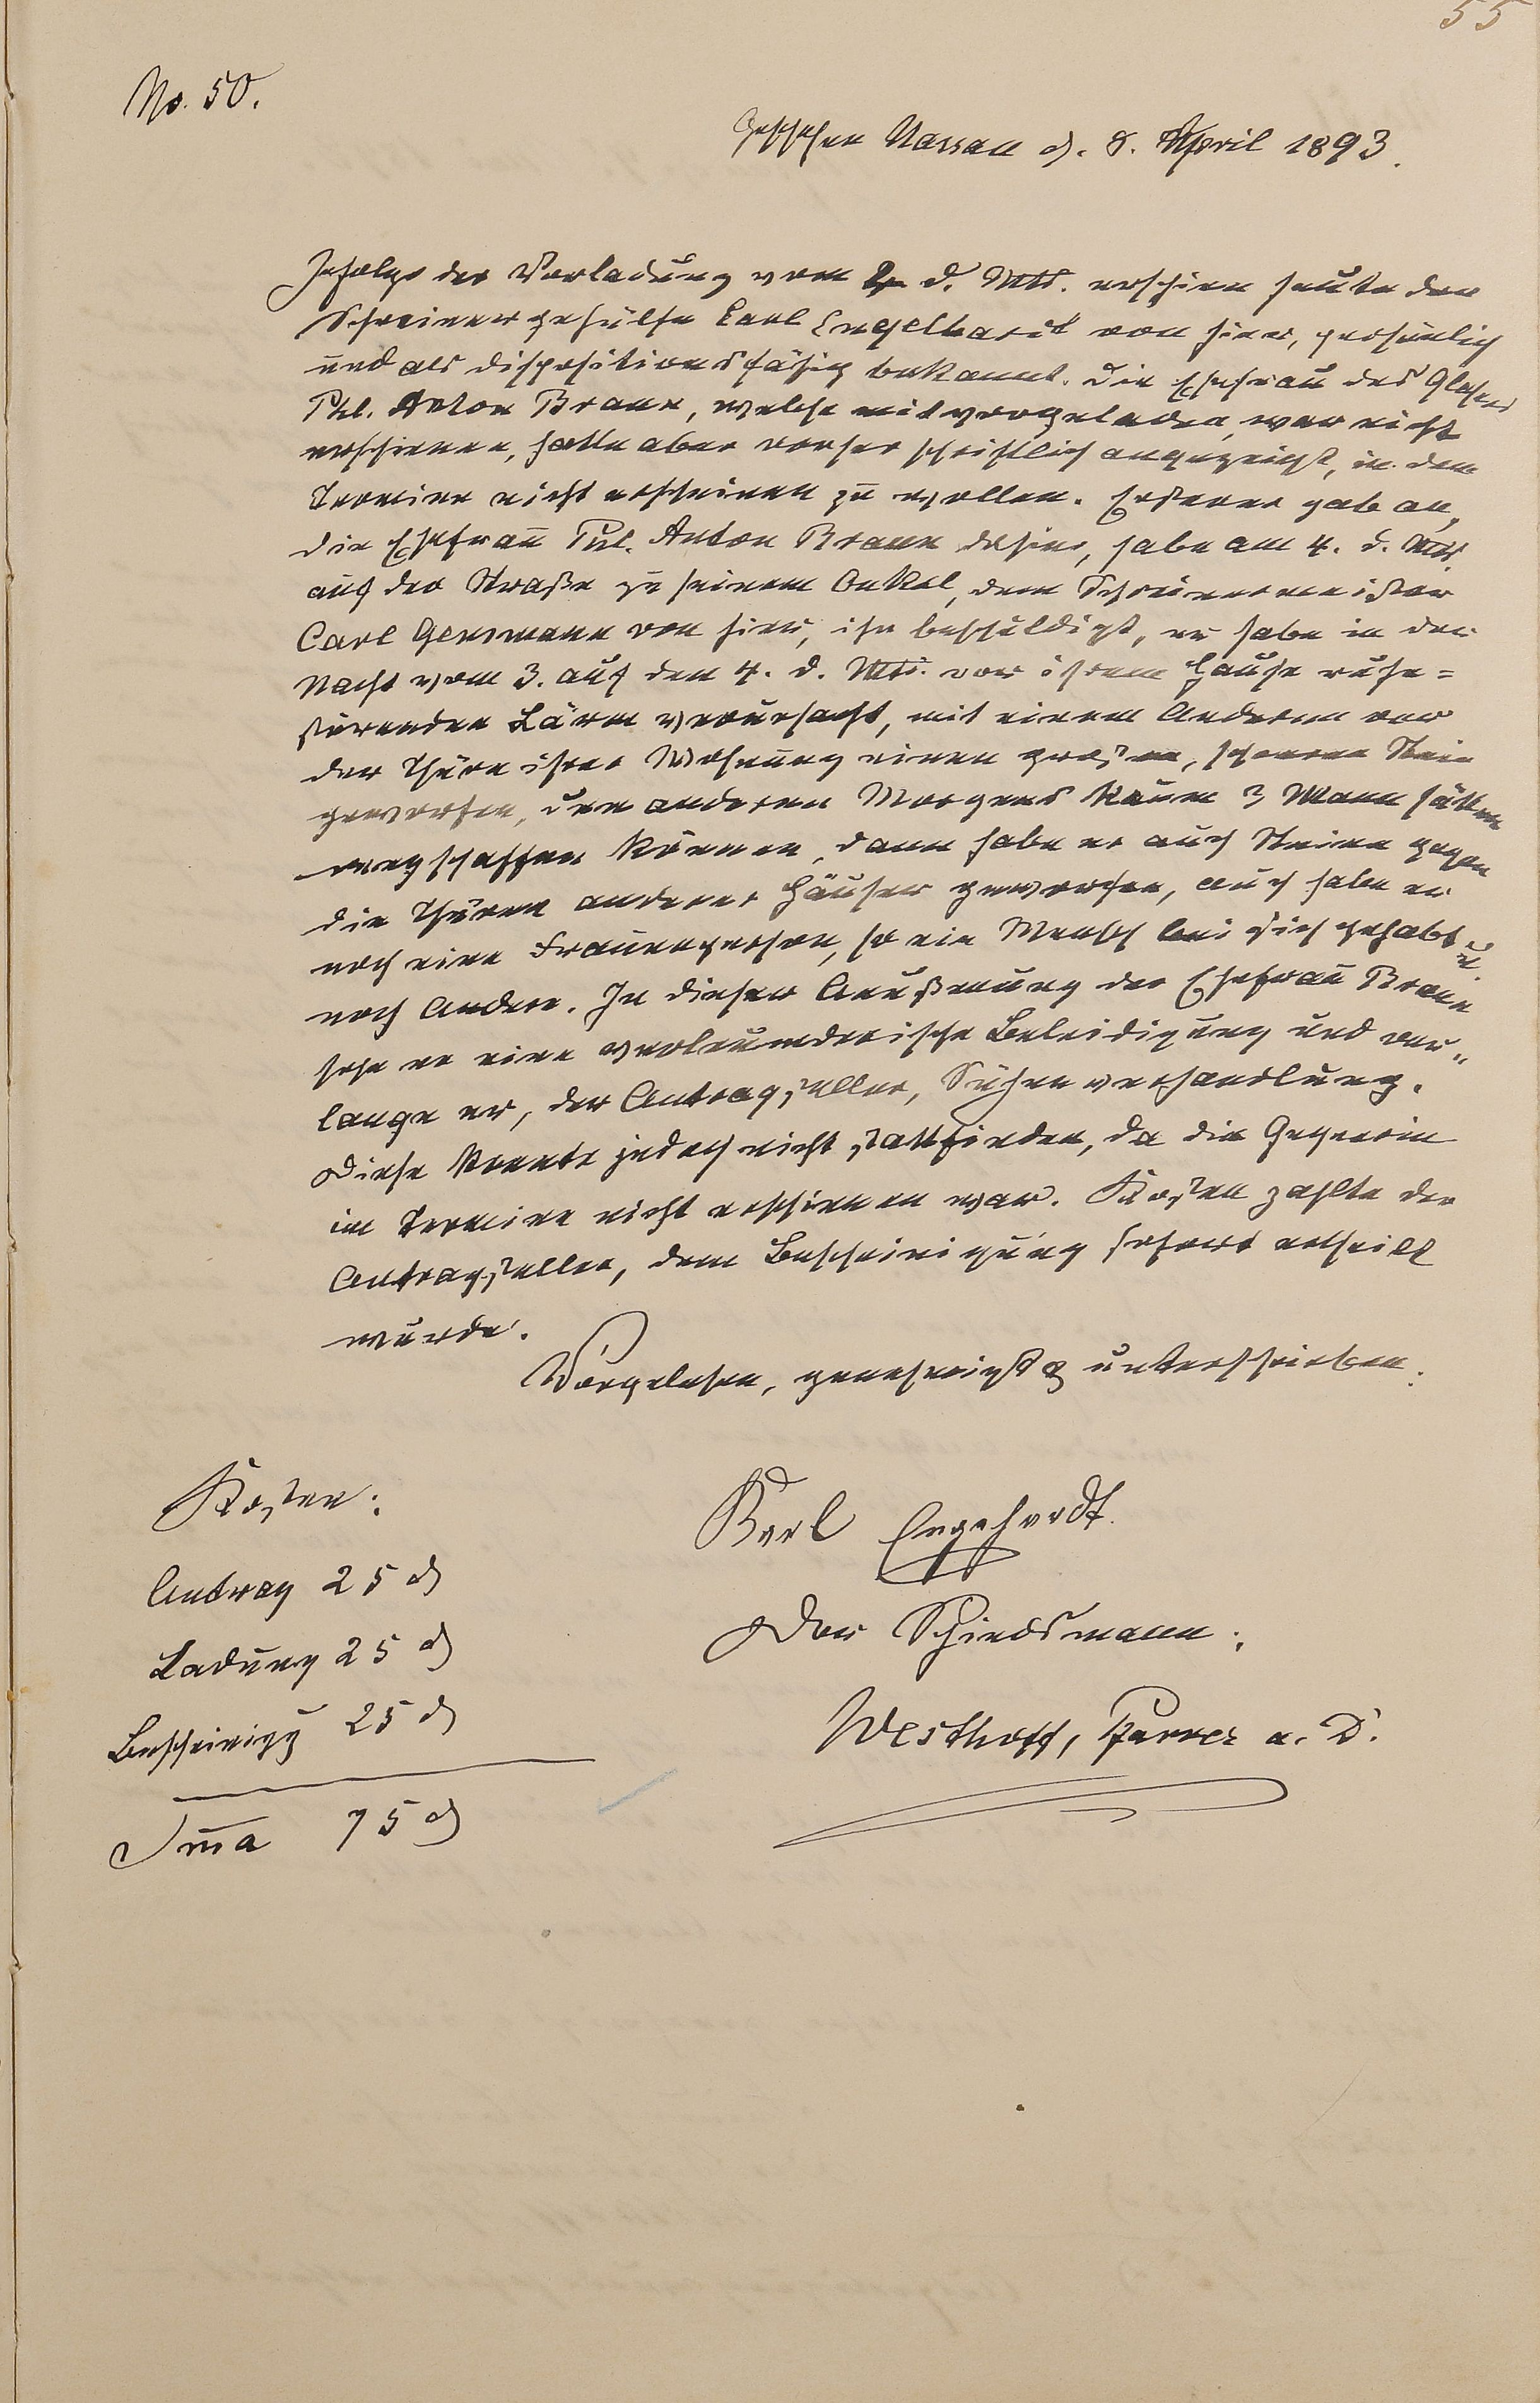 55
No. 50.
Geschehen Nassau d. 8. April 1893.
Infolge der Vorladung vom d. Mts. erschien heute der
Schreinergehülfe Carl Engelhardt von hier, persönlich
und als dispositionsfähig bekannt. Die Ehefrau des Glasers
Phl. Anton Braun, welche mitvorgeladen, war nicht
erschienen, hatte aber vorher schriftlich angezeigt, in dem
Termine nicht erscheinen zu wollen. Ersterer gab an,
die Ehefrau Phl. Anton Braun dahier, habe am 4. d. Mts.
auf der Straße zu seinem Onkel, dem Schreinermeister
Carl Gensmann von hier, ihn beschuldigt, er habe in der
Nacht vom 3. auf den 4. d. Mts. vor ihrem Hause ruhe=
störenden Lärm verursacht, mit einem Anderen vor
der Thüre ihrer Wohnung einen großen, schweren Stein
geworfen, den anderen Morgens kaum 3 Mann hätten
wegschaffen können, dann habe er auch Steine gegen
die Thüren anderer Häuser geworfen, auch habe er
noch eine Frauenperson, so ein Mensch bei sich gehabt u.
noch Andere. In dieser Aeußerung der Ehefrau Braun
sehe er eine verleumderische Beleidigung und ver„
lange er, der Antragsteller, Sühneverhandlung.
Diese konnte jedoch nicht stattfinden, da die Gegnerin
im Termine nicht erschienen war. Kosten zahlte der
Antragsteller, dem Bescheinigung sofort ertheilt
wurde.
Vorgelesen, genehmigt & unterschrieben:
Kosten:
Antrag 25 ₰
Ladung 25 ₰
Bescheinigg 25 ₰
Sm̅a 75 ₰
Karl Engehardt.
Der Schiedsmann:
Westhoff, Pfarrer a. D.